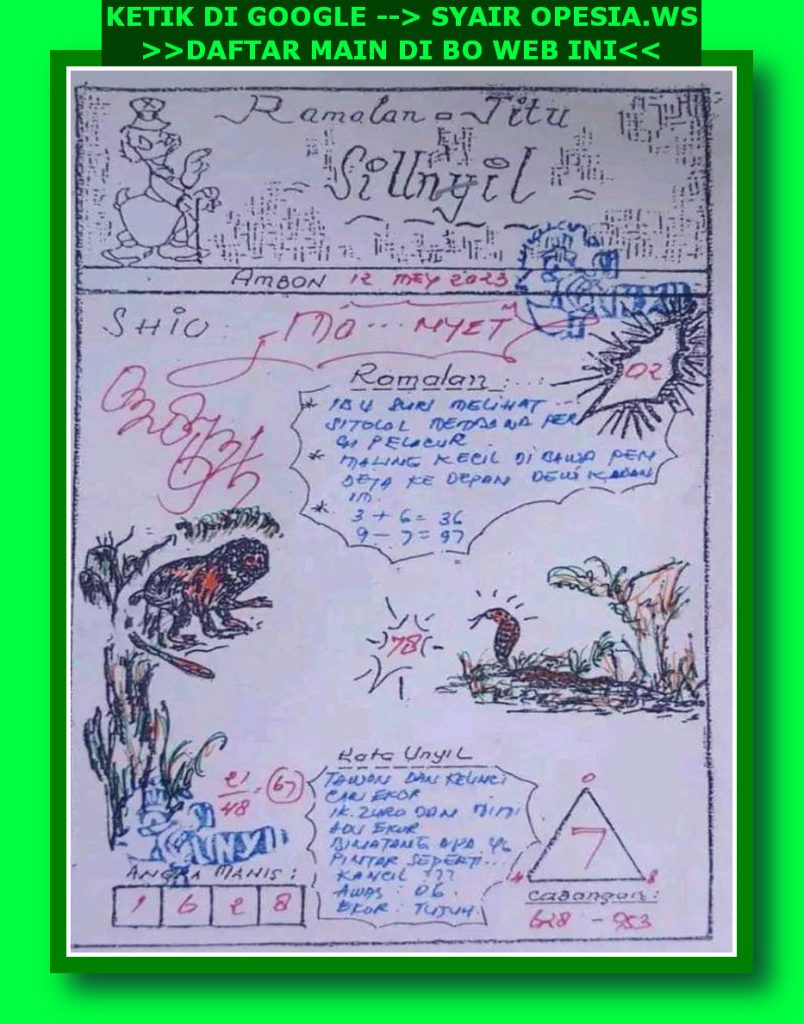 KETIK DI GOOGLE --> SYAIR OPESIA.WS
>>DAFTAR MAIN DI BO WEB INI<<
Ramalan = Jitu
= SiUnyil =
AMBON 12 MEY 2023
SHIO MO... NYET
02
Ramalan :
* IBU SURI MELIHAT
SITOLOL MEMBAWA PER
GI PELACUR.
* MALING KECIL DI BAWA PEM
BEJA KE DEPAN DEWI KADAN
IM.
* 3 + 6 = 36
9 - 7 = 97
78
Kata Unyil
TAWON DAN KELINCI
CARI EKOR
ADU EKOR
BINATANG APA YG
PINTAR SEPERTI...
KANCIL ???
AWAS : 06.
EKOR : TUJUH.
21
48 = 67
UNYIL
ANGKA MANIS :
1 6 2 8
0
7
8
Cadangan :
628 - 953